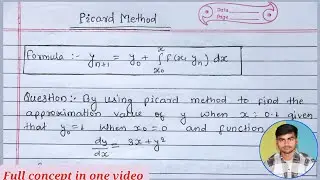 Date
Page
Picard Method
Formula :- y_{n+1} = y_0 + ∫_{x_0}^{x} f(x, y_n) dx
Question:- By using picard method to find the
approximation value of y when x = 0.1 given
that y_0 = 1 when x_0 = 0 and function
dy/dx = 3x + y²
Full concept in one video